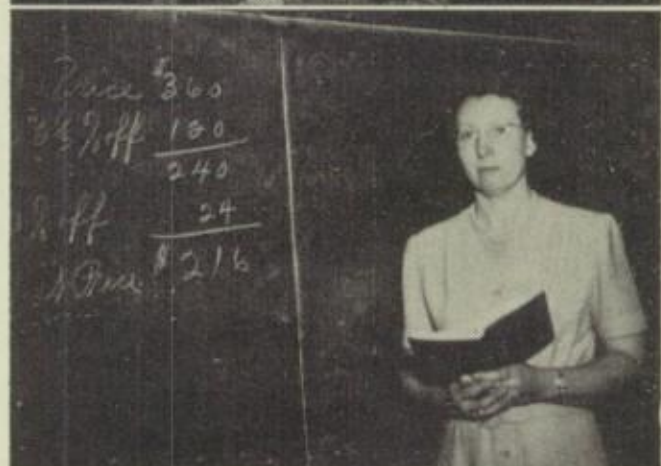 Price $360
% off 120
240
% off 24
Price $216